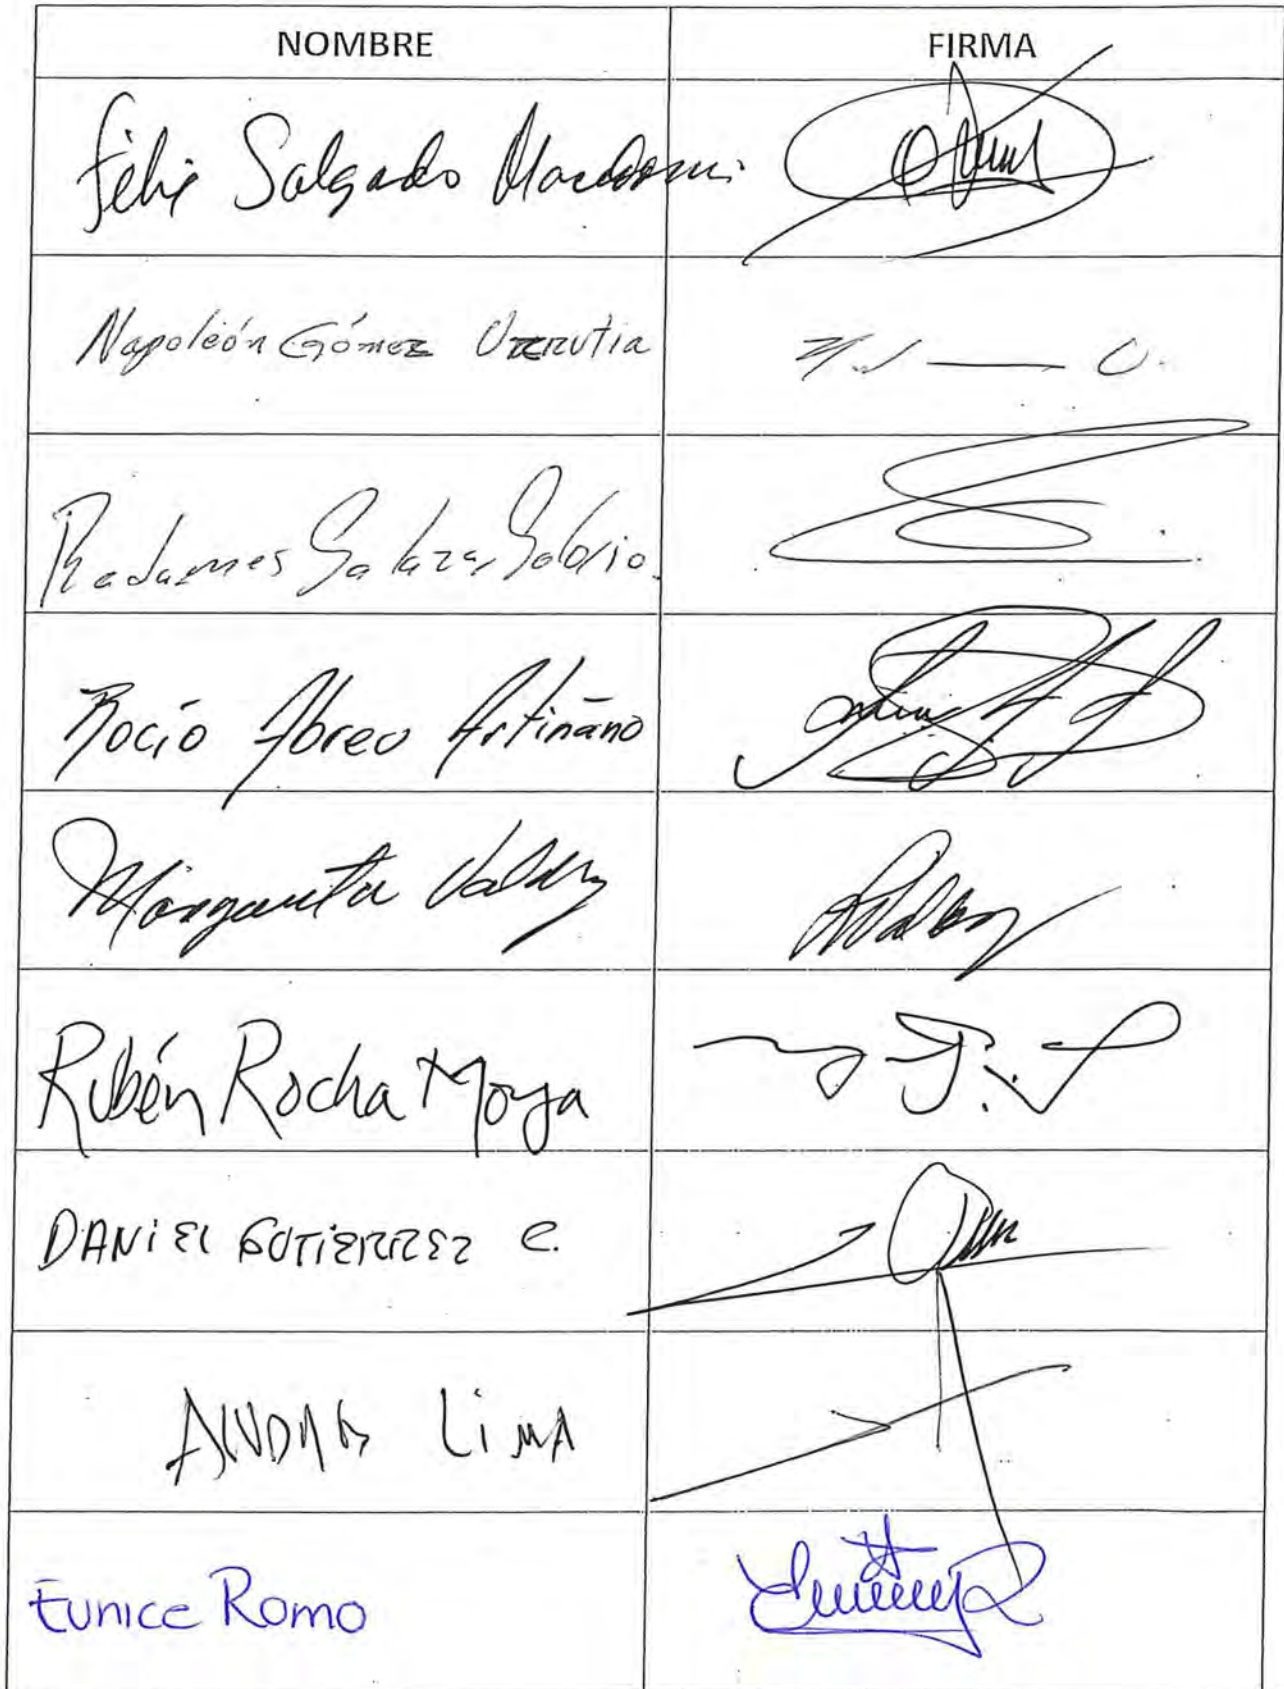 NOMBRE FIRMA
Félix Salgado Macedonio
Napoleón Gómez Urrutia
Radames Salazar Solorio
Rocío Abreu Artiñano
Margarita Valdez
Rubén Rocha Moya
DANIEL GUTIERREZ C.
LIMA
Eunice Romo